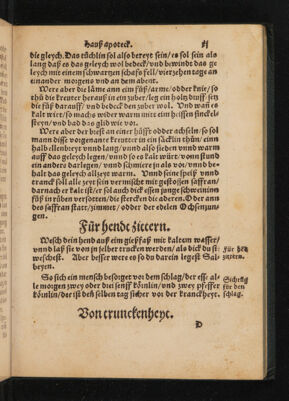 hauß apoteck.
die gleych. Das tüchlin sol also bereyt sein/ es sol sein als
lang daß es das geleych wol bedeck/ vnd bewindt das ge
leych mit einem schwartzen schafs fell/ vierzehen tage an
einander morgens vnd an dem abent.
Were aber die läme ann ein füß/ arme/ odder knie/ so
thü die kreuter herauß in ein zuber/ leg ein holtz duff setz
die füß darauff/ vnd deck den zuber wol. Vnd wañ es
kalt wirt/ so machs wider warm mitt ein heissen
steyn/ vnd bad das glid wie vor.
Were aber der brest an einer hüfft odder achseln/ so sol
mann disse vorgenante kreuter in ein säcklin thün/ eynn
halb ellenbeyt vnnd lang/ vnnd also sieden vnnd warm
auff das geleych legen/ vnnd so es kalt würt/ vonn stund
ein anders darlegen/ vnnd schmiere ja als vor/ vnnd be
halt das geleych allzeyt warm. Vnnd seine speiß vnn
tranck soll alle zeyt sein vermischt mit gestossen saffran/
darnach er kalt ist/ sol auch dick essen jungeschweinim
füß in rüben versotten/ die stercken die aderen. Oder ann
des saffran statt/ zimmet/ odder der edelen Ochsenzun
gen.
Für hendt zittern.
Welch dein hend auß ein gießfaß mit kaltem wasser/
vnnd laß sie von jn selber trucken werden/ als dick du si
weschest. Aber besser were es zwey darin legest Sal
beyen.
Für hen
zittern.
So sich ein mensch besorget vor dem schlag/ der esse al
le morgen zwey oder drei senff körnlin/ vnd zwey pfeffer
körnlin/ der ist deñ selben tag sicher vor der kranckheyt.
für den
schlag.
Von trunckenheyt.
D